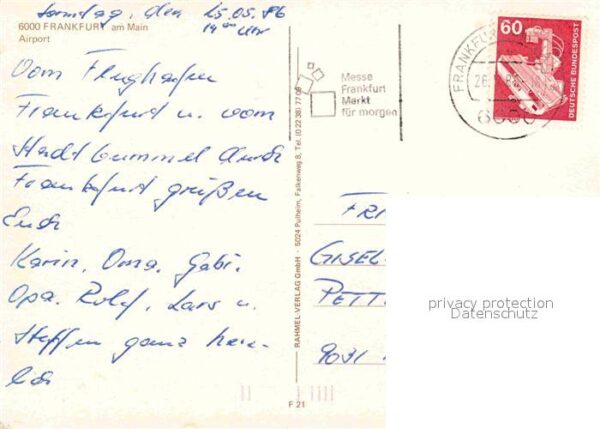 Sonntag, den 25.05.86
14 00 Uhr
6000 FRANKFURT am Main
Airport
Vom Flughafen
Frankfurt u. vom
Stadtbummel durch
Frankfurt grüßen
Euch
Karin, Oma, Gabi,
Opa, Rolf, Lars u.
Steffen ganz herz-
lich
RAHMEL-VERLAG GmbH · 5024 Pulheim, Falkenweg 8, Tel. (0 22 38) 77 08
F 21
Messe
Frankfurt
Markt
für morgen
FRANKFU
26.
600
60
DEUTSCHE BUNDESPOST
FRI
GISEL
PETT
9031
privacy protection
Datenschutz